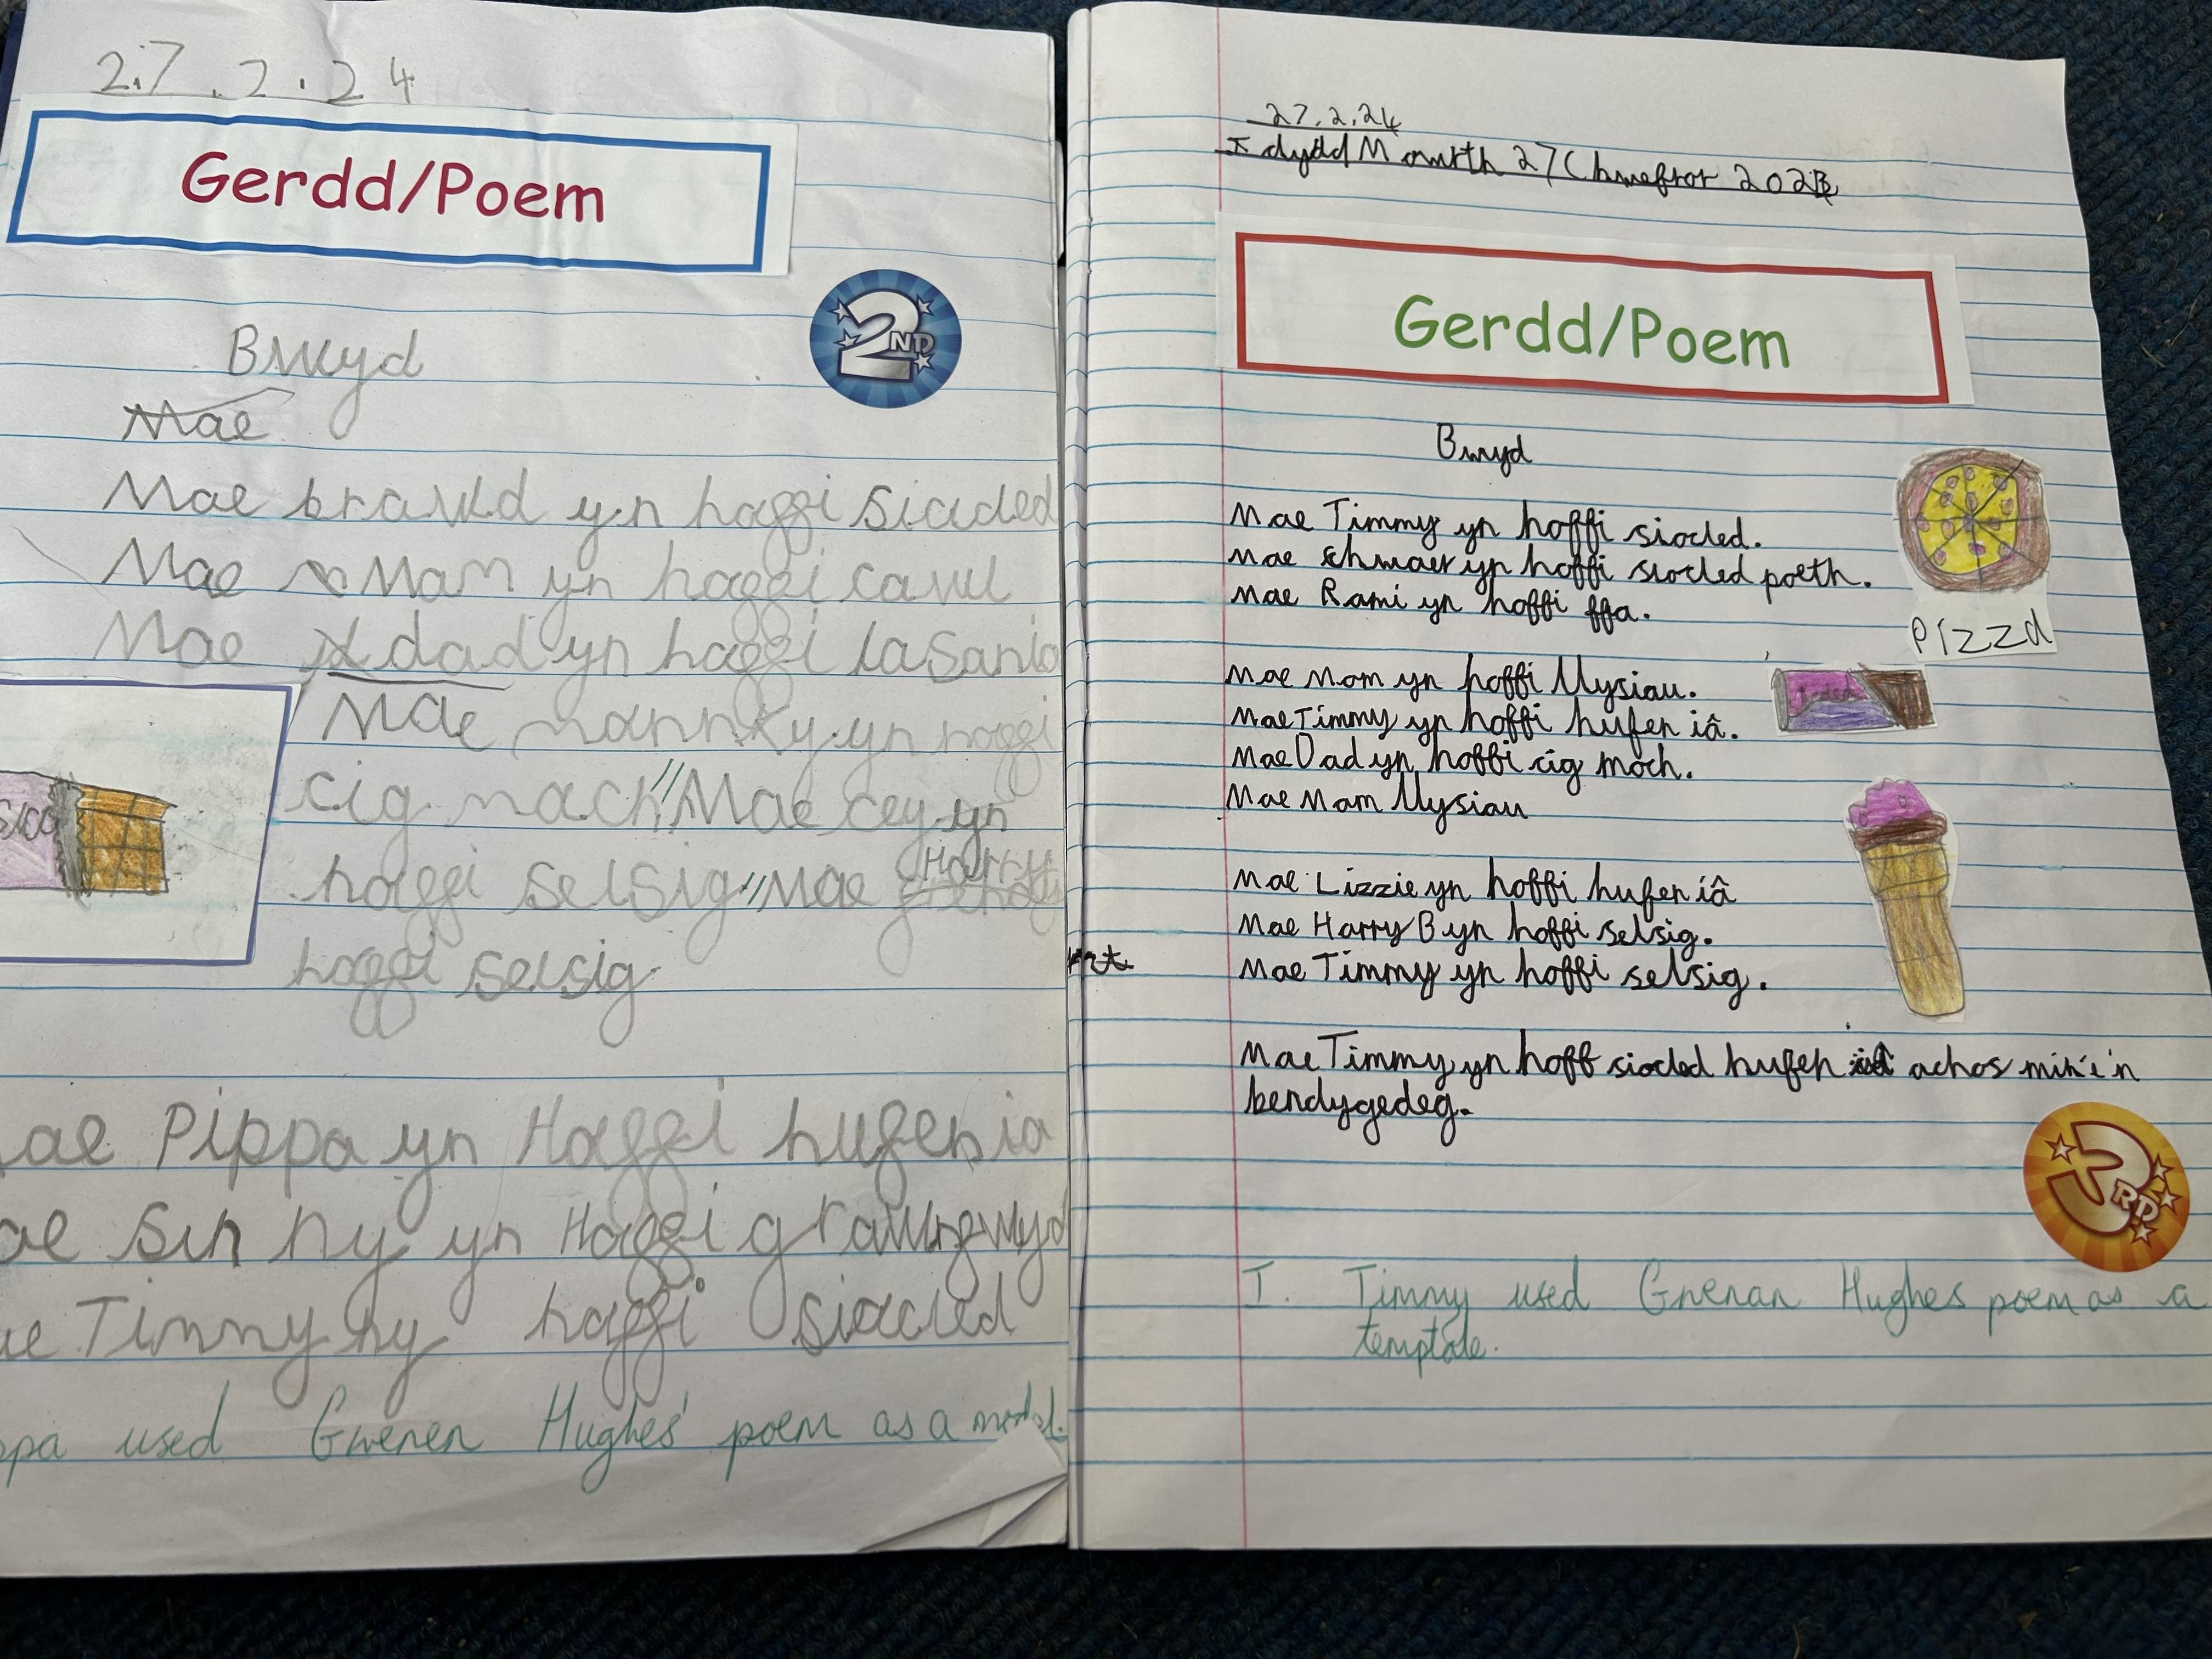 27.2.24
Gerdd/Poem
2ND
Bwyd
Mae
Mae brawd yn hoffi siocled
Mae Mam yn hoffi cawl
Mae dad yn hoffi lasania
Mae yn hoffi
cig moch // Mae cey yn
hoffi selsig // Mae Harry
hoffi selsig
ae Pippa yn Hoffi hufen ia
ae yn Hoffi grawnfwyd
ae Timmy ny hoffi siocled
ppa used Gwenen Hughes' poem as a model.
27.2.24
dydd Mawrth 27 Chwefror
Gerdd/Poem
Bwyd
Mae Timmy yn hoffi siocled.
Mae chwaer yn hoffi siocled poeth.
Mae Rami yn hoffi ffa.
Mae Mam yn hoffi llysiau.
Mae Timmy yn hoffi hufen iâ.
Mae Dad yn hoffi cig moch.
Mae Mam llysiau
Mae Lizzie yn hoffi hufen iâ
Mae Harry B yn hoffi selsig.
Mae Timmy yn hoffi selsig.
Mae Timmy yn hoff siocled hufen achos
bendygedeg.
Pizza
3RD
I. Timmy used Gwenan Hughes poem as a
template.